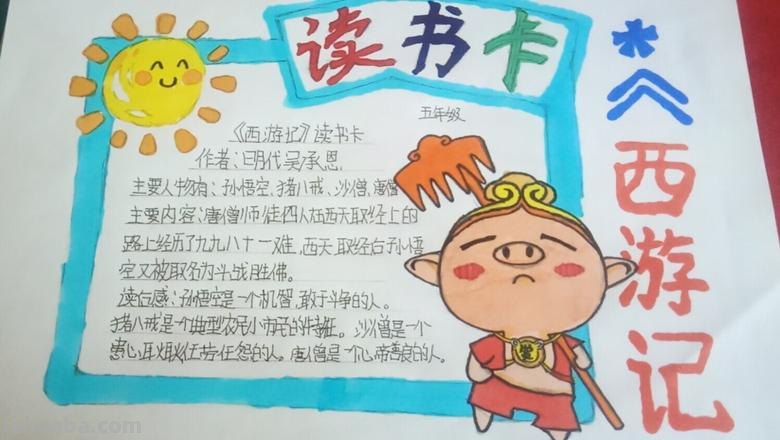 读书卡
五年级
《西游记》读书卡
作者:明代吴承恩
主要人物有:孙悟空,猪八戒,沙僧,唐僧
主要内容:唐僧师徒四人在西天取经上的
路上经历了九九八十一难,西天取经后孙悟
空又被取名为斗战胜佛。
读后感:孙悟空是一个机智,敢于斗争的人。
猪八戒是一个典型农民小市民的。沙僧是一个
忠心耿耿任劳任怨的人。唐僧是一个心善良的人。
*《西游记
ba.com